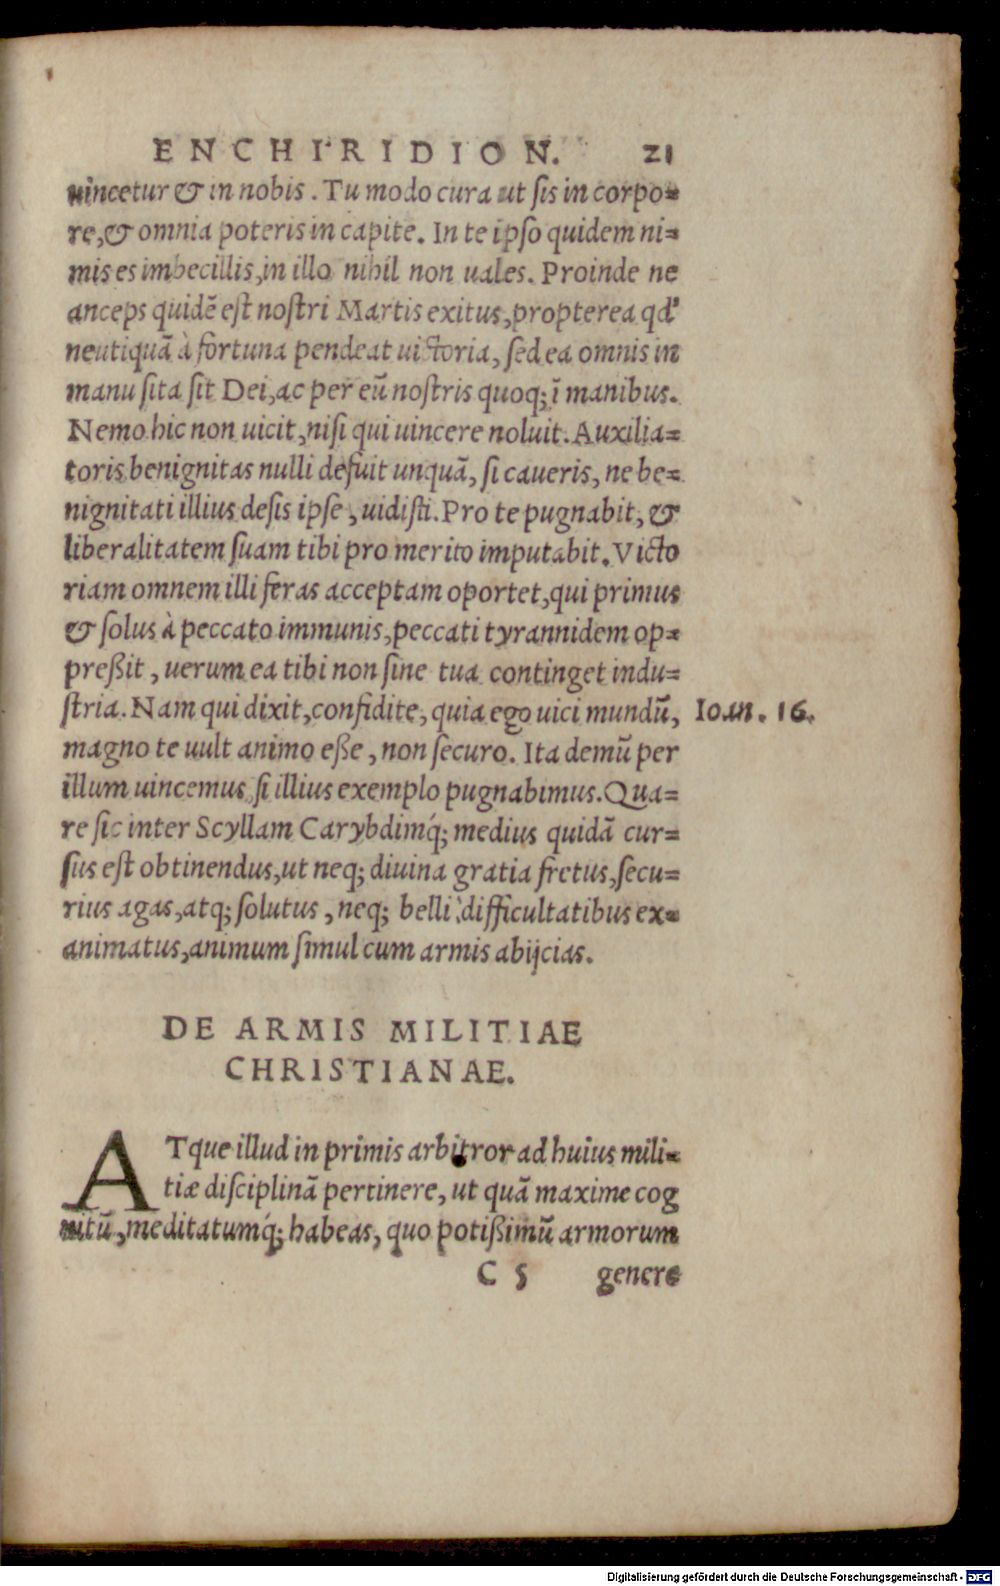 ENCHIRIDION. 21
uincetur & in nobis. Tu modo cura ut ſis in corpo=
re, & omnia poteris in capite. In te ipſo quidem ni=
mis es imbecillis, in illo nihil non uales. Proinde ne
anceps quidē eſt noſtri Martis exitus, propterea qd'
neutiquā à fortuna pendeat uictoria, ſed ea omnis in
manu ſita ſit Dei, ac per eū noſtris quoq; ī manibus.
Nemo hic non uicit, niſi qui uincere noluit. Auxilia=
toris benignitas nulli defuit unquā, ſi caueris, ne be=
nignitati illius deſis ipſe, uidiſti. Pro te pugnabit, &
liberalitatem ſuam tibi pro merito imputabit. Victo
riam omnem illi feras acceptam oportet, qui primus
& ſolus à peccato immunis, peccati tyrannidem op=
preßit, uerum ea tibi non ſine tua continget indu=
ſtria. Nam qui dixit, confidite, quia ego uici mundū,
Ioan. 16.
magno te uult animo eße, non ſecuro. Ita demū per
illum uincemus, ſi illius exemplo pugnabimus. Qua=
re ſic inter Scyllam Carybdimq́; medius quidā cur=
ſus eſt obtinendus, ut neq; diuina gratia fretus, ſecu=
rius agas, atq; ſolutus, neq; belli difficultatibus ex=
animatus, animum ſimul cum armis abijcias.
DE ARMIS MILITIAE
CHRISTIANAE.
ATque illud in primis arbitror ad huius mili=
tiæ diſciplinā pertinere, ut quā maxime cog
nitū, meditatumq́; habeas, quo potißimū armorum
C 5 genere
Digitalisierung gefördert durch die Deutsche Forschungsgemeinschaft - DFG